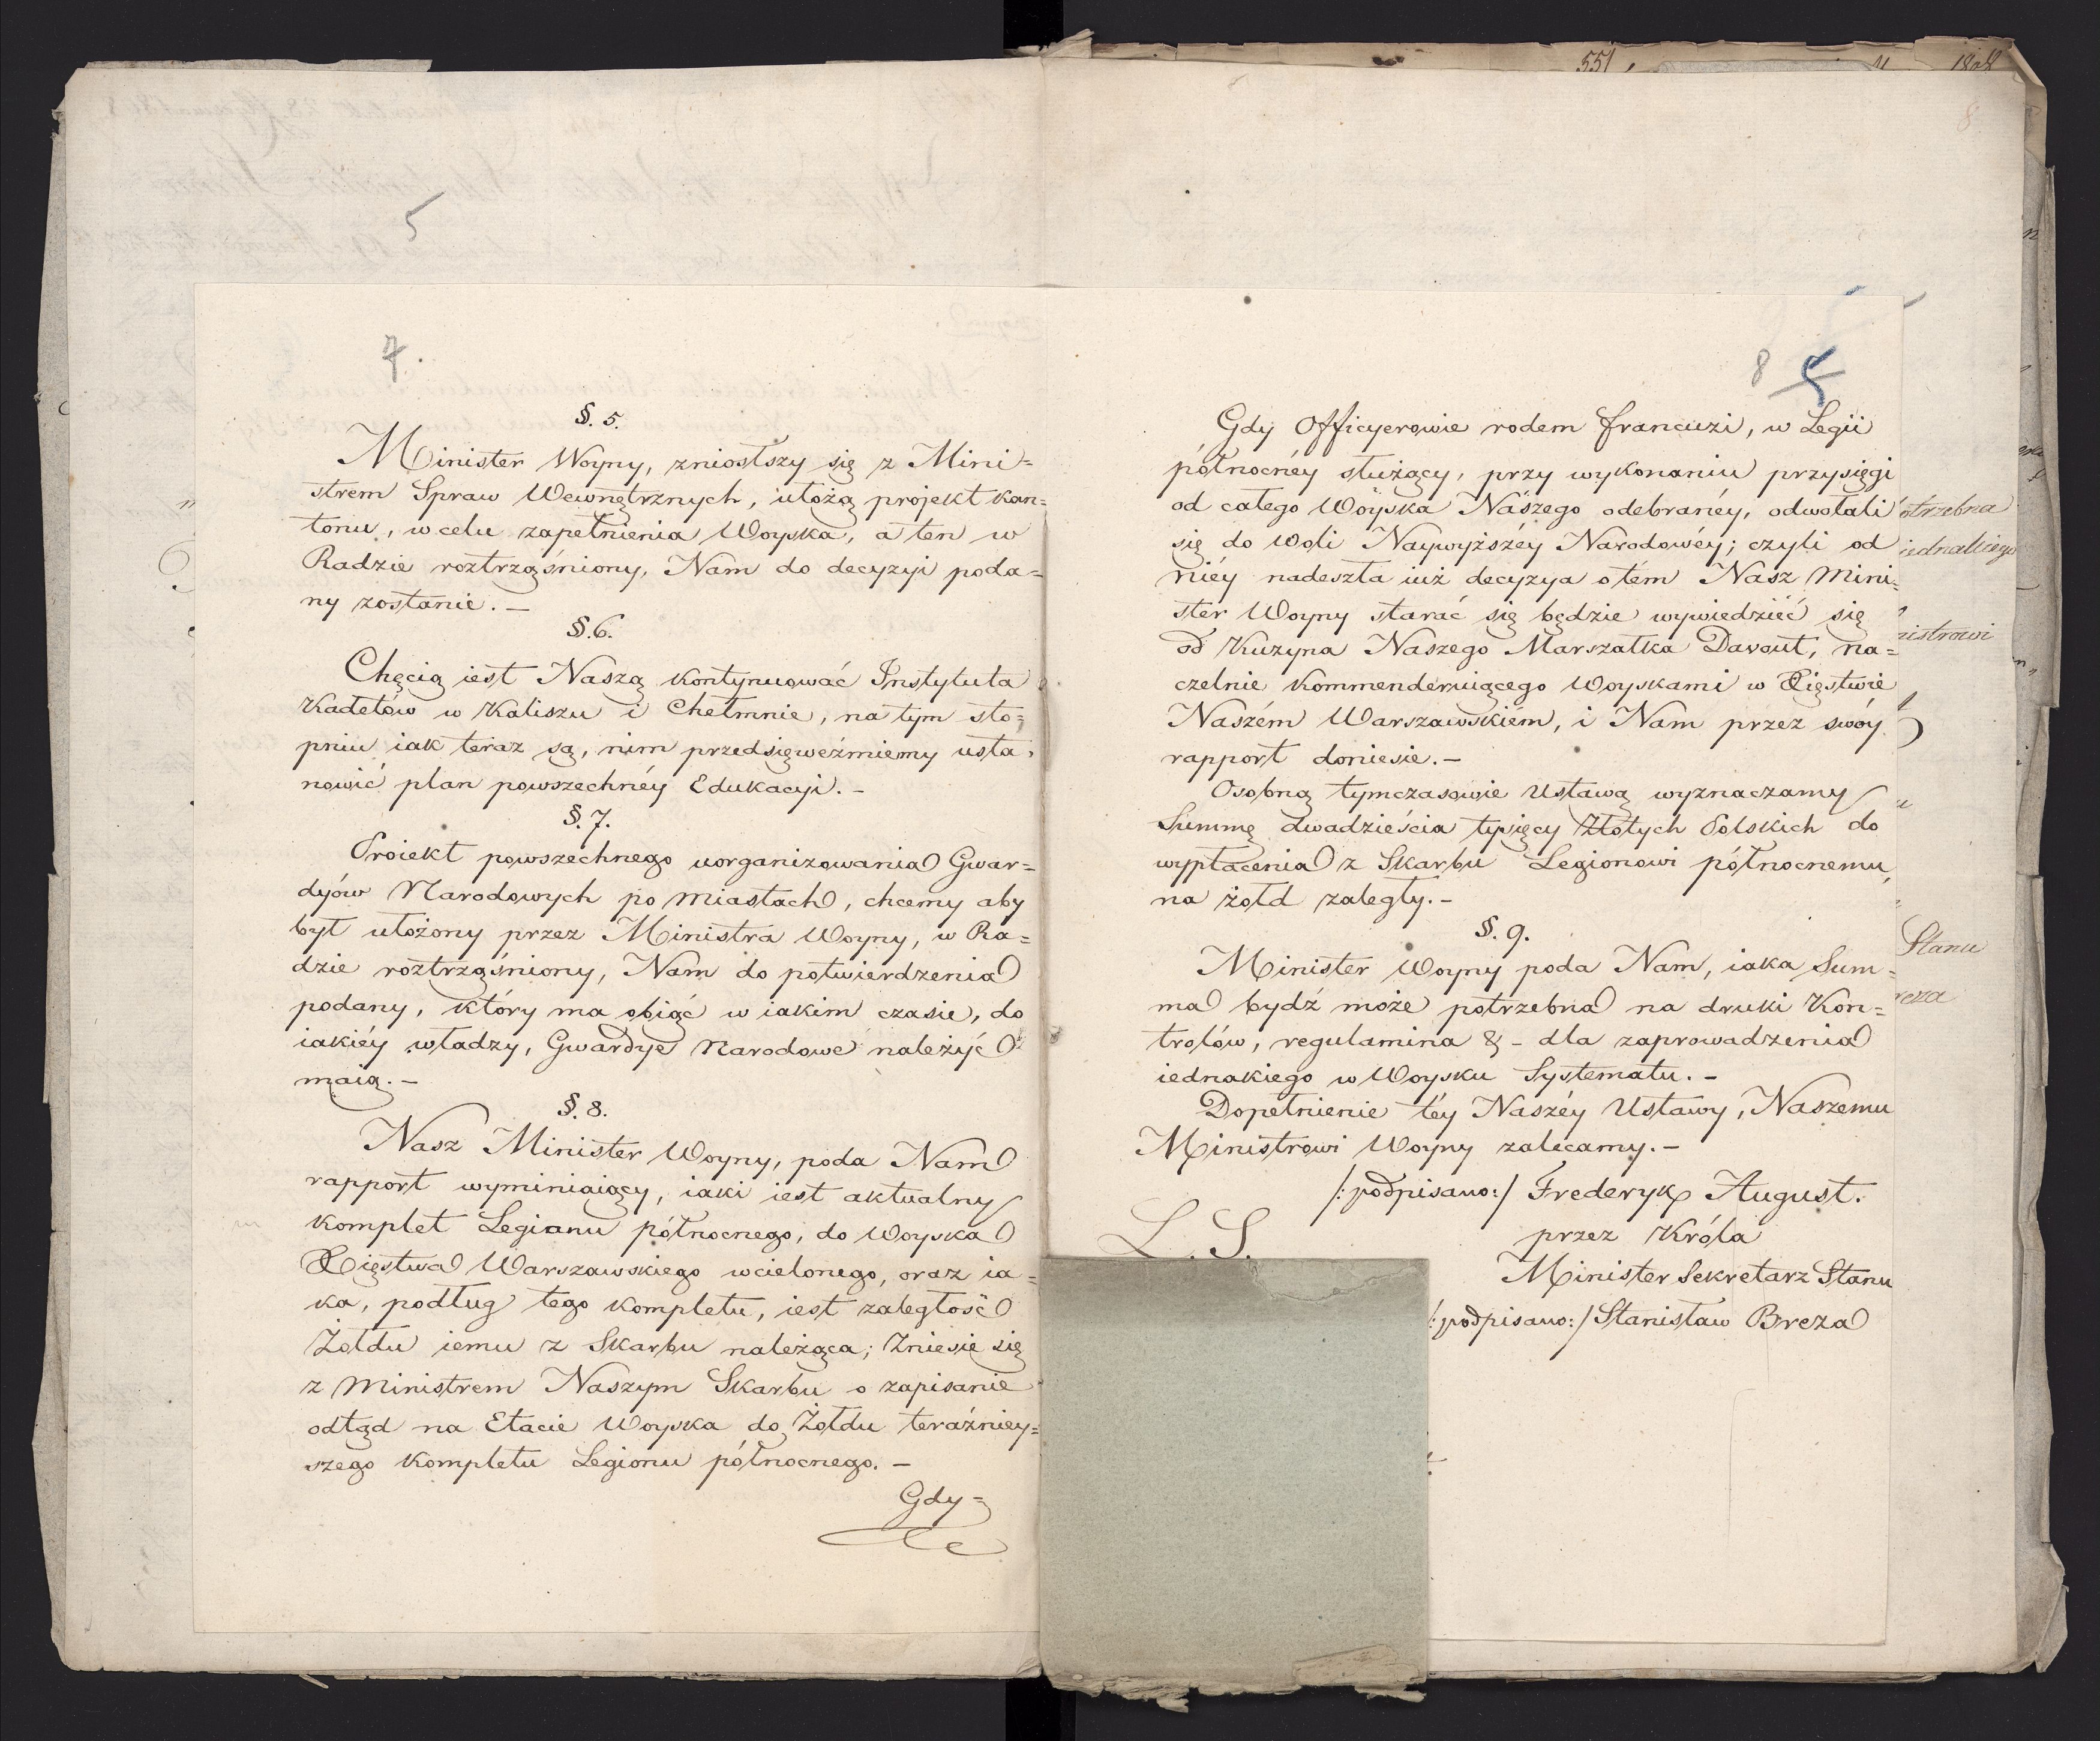 5
7.
§. 5.
Minister Woyny, zniosłszy się z Mini=
strem Spraw Wewnętrznych, ułożą projekt kan=
tonu, w celu zapełnienia Woyska, a ten w
Radzie roztrząśniony, Nam do decyzyi poda=
ny zostanie. —
§. 6.
Chęcią iest Naszą kontynuować Instytuta
Kadetów w Kaliszu i Chełmnie, na tym sto=
pniu iak teraz są, nim przedsięweźmiemy usta=
nowić plan powszechnéy Edukacyi. —
§. 7.
Proiekt powszechnego uorganizowania Gwar=
dyów Narodowych po miastach, chcemy aby
był ułożony przez Ministra Woyny, w Ra=
dzie roztrząśniony, Nam do potwierdzenia
podany, który ma obiąć w iakim czasie, do
iakiéy władzy, Gwardye Narodowe należyć
maią. —
§. 8.
Nasz Minister Woyny, poda Nam
rapport wyminiaiący, iaki iest aktualny
komplet Legianu północnego, do Woyska
Xięstwa Warszawskiego wcielonego, oraz ia=
ka, podług tego kompletu, iest zaległość
Żołdu iemu z Skarbu należąca; Zniesie się
z Ministrem Naszym Skarbu o zapisanie
odtąd na Etacie Woyska do Żołdu teraźniey=
szego kompletu Legionu północnego. —
Gdy =
551
1808
8
8 5
Gdy Officyerowie rodem francuzi, w Legii
północnéy służący, przy wykonaniu przysięgi
od całego Woyska Nászego odebranéy, odwołali
się do Woli Naywyższéy Narodowéy; czyli od
niéy nadeszła iuż decyzya o tém Nasz Mini=
ster Woyny starać się będzie wywiedzieć się
od Kuzyna Naszego Marszałka Davout, na=
czelnie kommenderuiącego Woyskami w Xięstwie
Naszém Warszawskiém, i Nam przez swóy
rapport doniesie. —
Osobną tymczasowie Ustawą wyznaczamy
Summę dwadzieścia tysięcy Złotych Polskich do
wypłacenia z Skarbu Legionowi północnemu,
na żołd zaległy. —
§. 9.
Minister Woyny poda Nam, iaka Sum=
ma bydź może potrzebna na druki Kon=
trolów, regulamina & — dla zaprowadzenia
iednakiego w Woysku Systematu. —
Dopełnienie téy Naszéy Ustawy, Naszemu
Ministrowi Woyny zalecamy. —
/:podpisano:/ Frederyk August.
L. S.
przez Króla
Minister Sekretarz Stanu
/:podpisano:/ Stanisław Breza
otrzebna
iednakiego
nistrowi
Stanu
reza